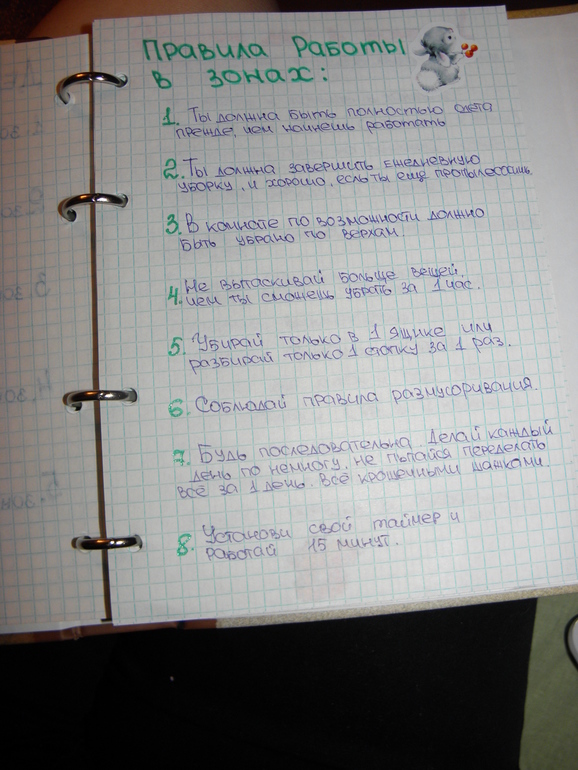 Правила работы
в зонах:
1. Ты должна быть полностью одета
прежде, чем начнёшь работать
2. Ты должна завершить ежедневную
уборку, и хорошо, если ты ещё пропылесосишь
3. В комнате по возможности должно
быть убрано по верхам.
4. Не вытаскивай больше вещей,
чем ты сможешь убрать за 1 час.
5. Убирай только в 1 ящике или
разбирай только 1 стопку за 1 раз.
6. Соблюдай правила размусоривания.
7. Будь последовательна. Делай каждый
день по немногу, не пытайся переделать
всё за 1 день. Всё крошечными шажками.
8. Установи свой таймер и
работай 15 минут.